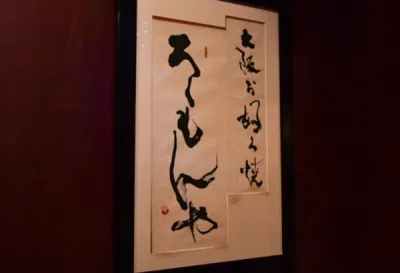 大阪お好み焼
ろくもんや